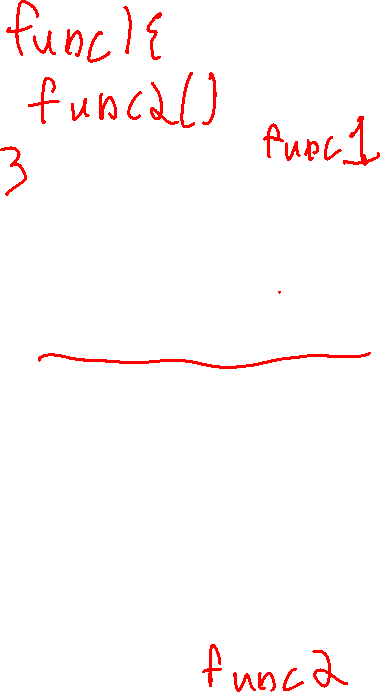 func1{
func2()
}
func1
func2